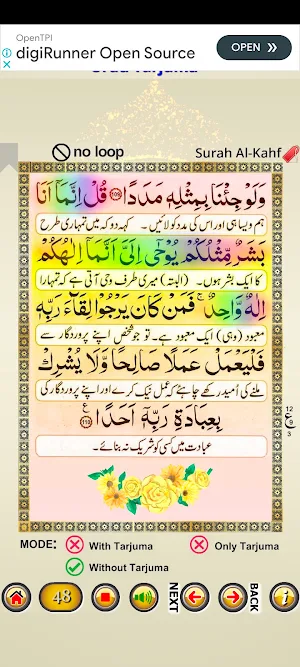 OpenTPI
digiRunner Open Source
OPEN
Urdu Tarjuma
no loop
Surah Al-Kahf
وَلَوْ جِئْنَا بِمِثْلِهٖ مَدَدًا ۝۱۰۹ قُلْ اِنَّمَاۤ اَنَا
ہم ویسا ہی اور اس کی مدد کو لائیں۔ کہہ دو کہ میں تمہاری طرح
بَشَرٌ مِّثْلُكُمْ يُوْحٰۤى اِلَيَّ اَنَّمَاۤ اِلٰهُكُمْ
کا ایک بشر ہوں۔ (البتہ) میری طرف وحی آتی ہے کہ تمہارا
اِلٰهٌ وَّاحِدٌ ۚ فَمَنْ كَانَ يَرْجُوْا لِقَآءَ رَبِّهٖ
معبود (وہی) ایک معبود ہے۔ تو جو شخص اپنے پروردگار سے
فَلْيَعْمَلْ عَمَلًا صَالِحًا وَّلَا يُشْرِكْ
ملنے کی اُمید رکھے چاہیئے کہ عمل نیک کرے اور اپنے پروردگار کی
بِعِبَادَةِ رَبِّهٖۤ اَحَدًا ۝۱۱۰
عبادت میں کسی کو شریک نہ بنائے۔
12
ع
9
3
MODE:
With Tarjuma
Only Tarjuma
Without Tarjuma
48
NEXT
BACK